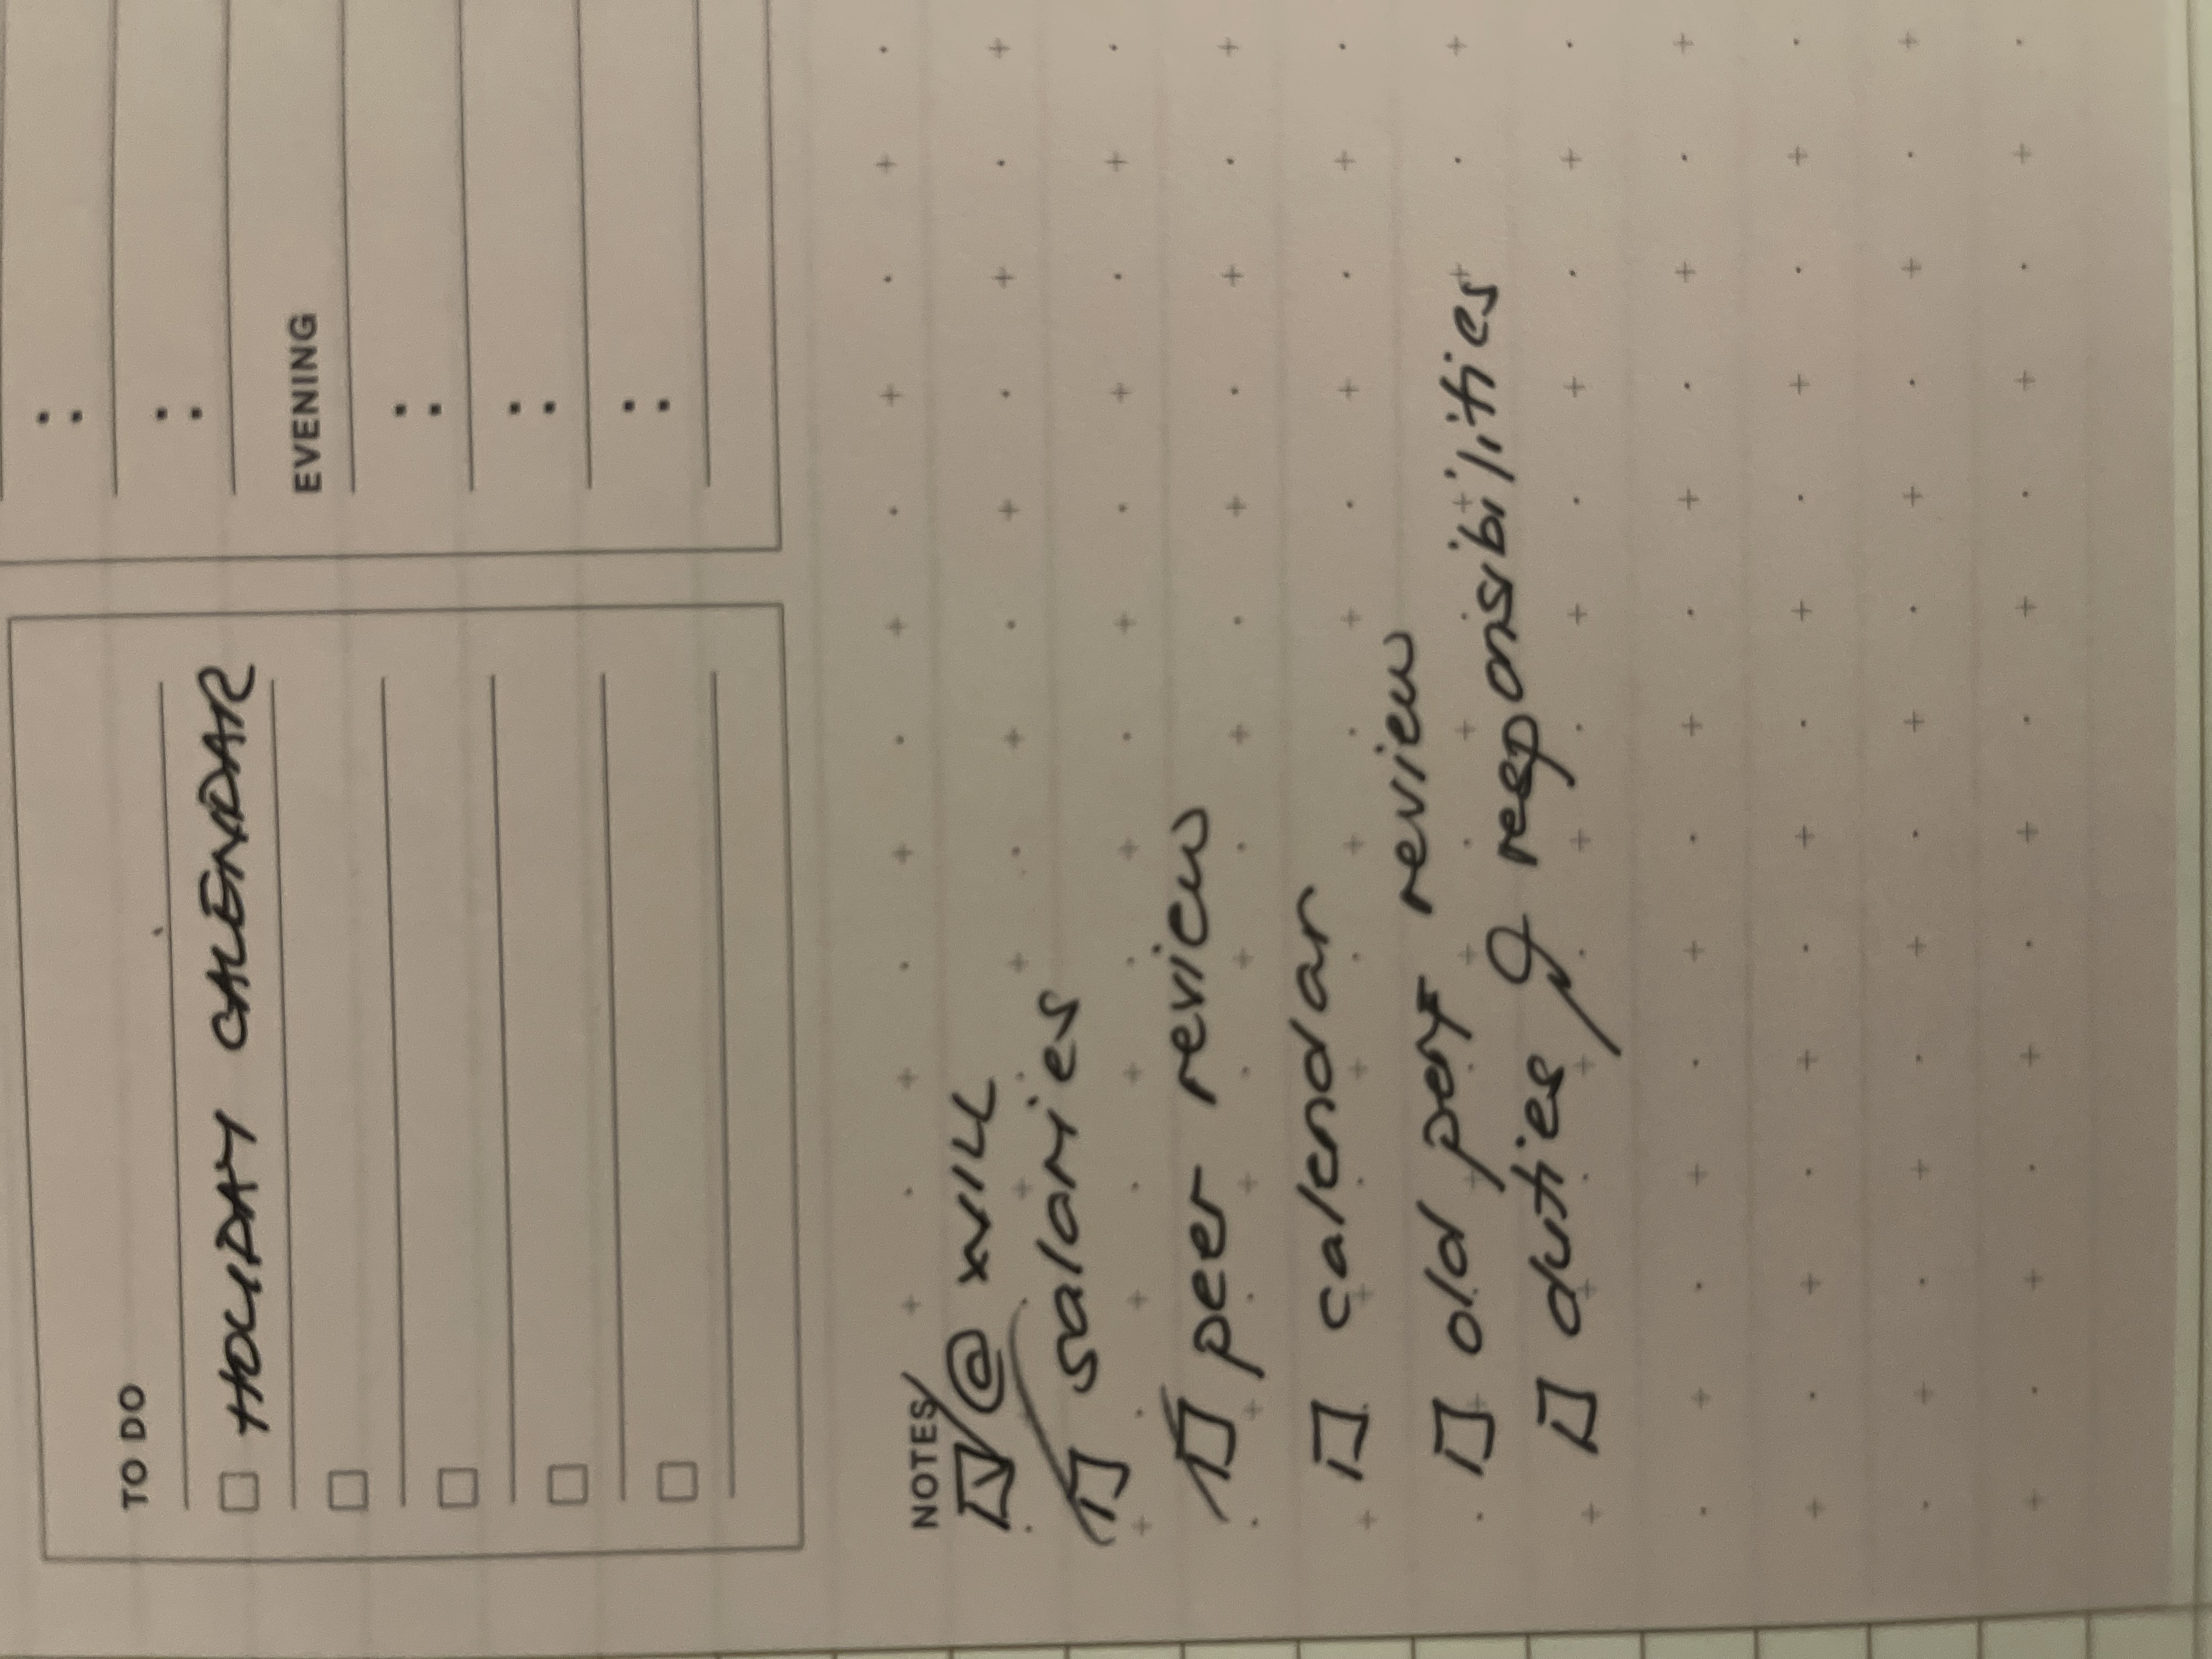 TO DO
HOLIDAY CALENDAR
EVENING
:
:
:
:
:
NOTES
@ WILL
salaries
peer review
calendar
old perf review
duties & responsibilities